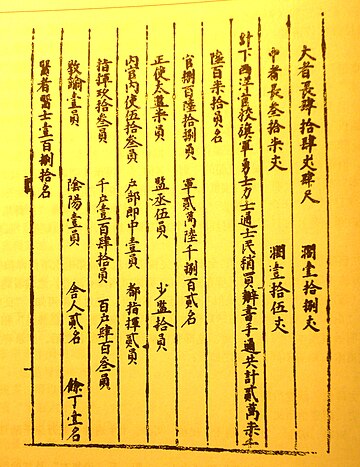 大者長肆拾肆丈肆尺 濶壹拾捌丈
中者長叁拾柒丈 濶壹拾伍丈
計下西洋官校旗軍勇士力士通士民稍買辦書手通共計貳萬柒千
陸百柒拾員名
官捌百陸拾捌員 軍貳萬陸千捌百貳名
正使太監柒員 監丞伍員 少監拾員
內官內使伍拾叁員 戶部郎中壹員 都指揮貳員
指揮玖拾叁員 千戶壹百肆拾員 百戶肆百叁員
教諭壹員 陰陽壹員 舍人貳名 餘丁壹名
醫者醫士壹百捌拾名